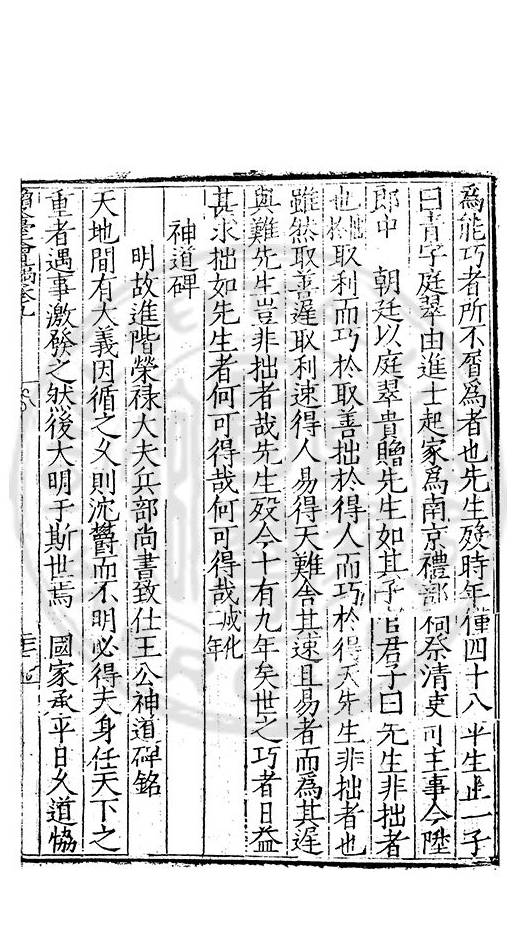 爲能巧者所不屑爲者也先生歿時年僅四十八平生止一子
曰青字庭翠由進士起家爲南京禮部祠祭清吏司主事今陞
郎中　朝廷以庭翠貴贈先生如其子官君子曰先生非拙者
也拙於取利而巧於取善拙於得人而巧於得天先生非拙者也
雖然取善遲取利速得人易得天難舍其速且易者而爲其遲
與難先生豈非拙者哉先生歿今十有九年矣世之巧者日益
甚求拙如先生者何可得哉何可得哉成化二年
神道碑
明故進階榮祿大夫兵部尚書致仕王公神道碑銘
天地間有大義因循之久則沈鬱而不明必得夫身任天下之
重者遇事激發之然後大明于斯世焉　國家承平日久道恊